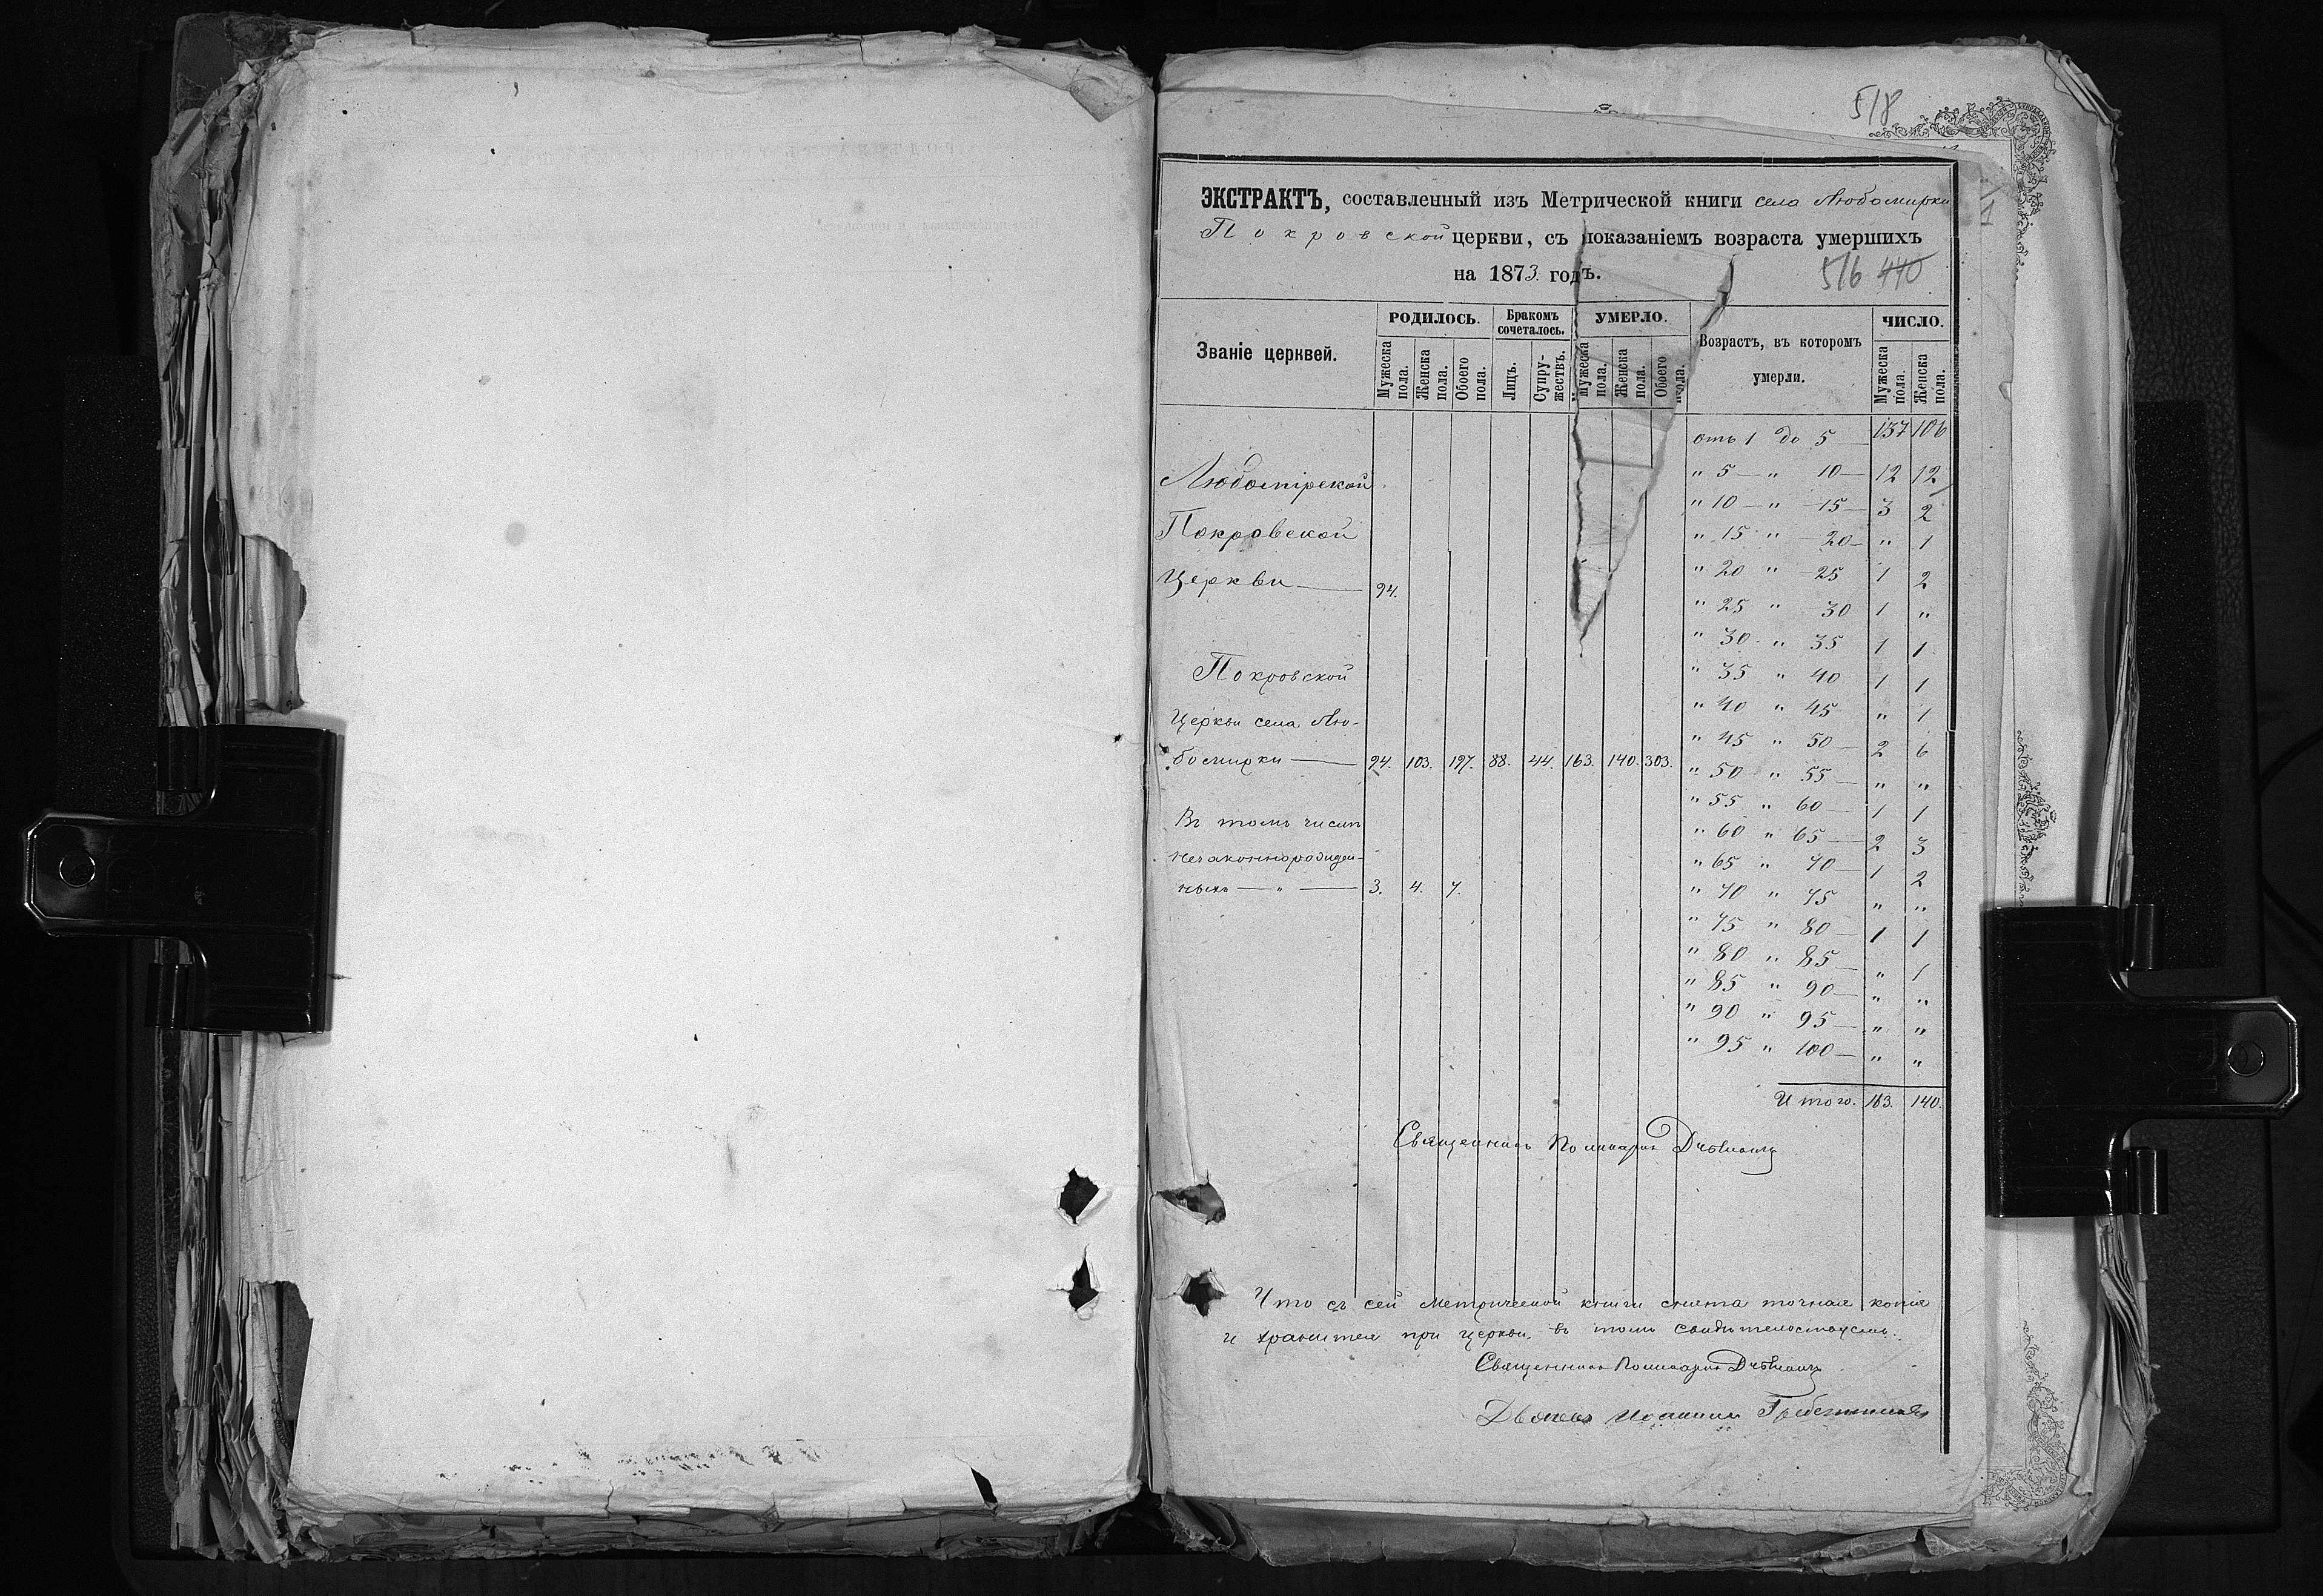 518
ЭКСТРАКТЪ, составленный изъ Метрической книги села Любомирки
Покровской церкви, съ показаніемъ возраста умершихъ
на 1873 годъ.
516 440
Званіе церквей.
РОДИЛОСЬ.
Мужеска пола.
Женска пола.
Обоего пола.
Бракомъ сочеталось.
Лицъ.
Супружествъ.
УМЕРЛО.
Мужеска пола.
Женска пола.
Обоего пола.
Возрастъ, въ которомъ умерли.
ЧИСЛО.
Мужеска пола.
Женска пола.
Любомірской
Покровской
Церкви — 94.
Покровской
Церкви села Лю-
бомирки — 94. 103. 197. 88. 44. 163. 140. 303.
Въ томъ числѣ
незаконнорожден-
ныхъ — " — 3. 4. 7.
отъ 1 до 5 — 137 106
" 5 — " 10 — 12 12
" 10 — " 15 — 3 2
" 15 " 20 — " 1
" 20 " 25 1 2
" 25 " 30 1 "
" 30 " 35 1 1
" 35 " 40 1 1
" 40 " 45 " 1
" 45 " 50 — 2 6
" 50 " 55 — " "
" 55 " 60 — 1 1
" 60 " 65 — 2 3
" 65 " 70 — 1 2
" 70 " 75 " "
" 75 " 80 — 1 1
" 80 " 85 — " 1
" 85 " 90 — " "
" 90 " 95 — " "
" 95 " 100 — " "
Итого. 163. 140.
Священникъ Поликарпъ
Что съ сей метрической книги снята точная копія
и хранится при церкви, въ томъ свидѣтельствуемъ.
Священникъ Поликарпъ
Іоаннъ